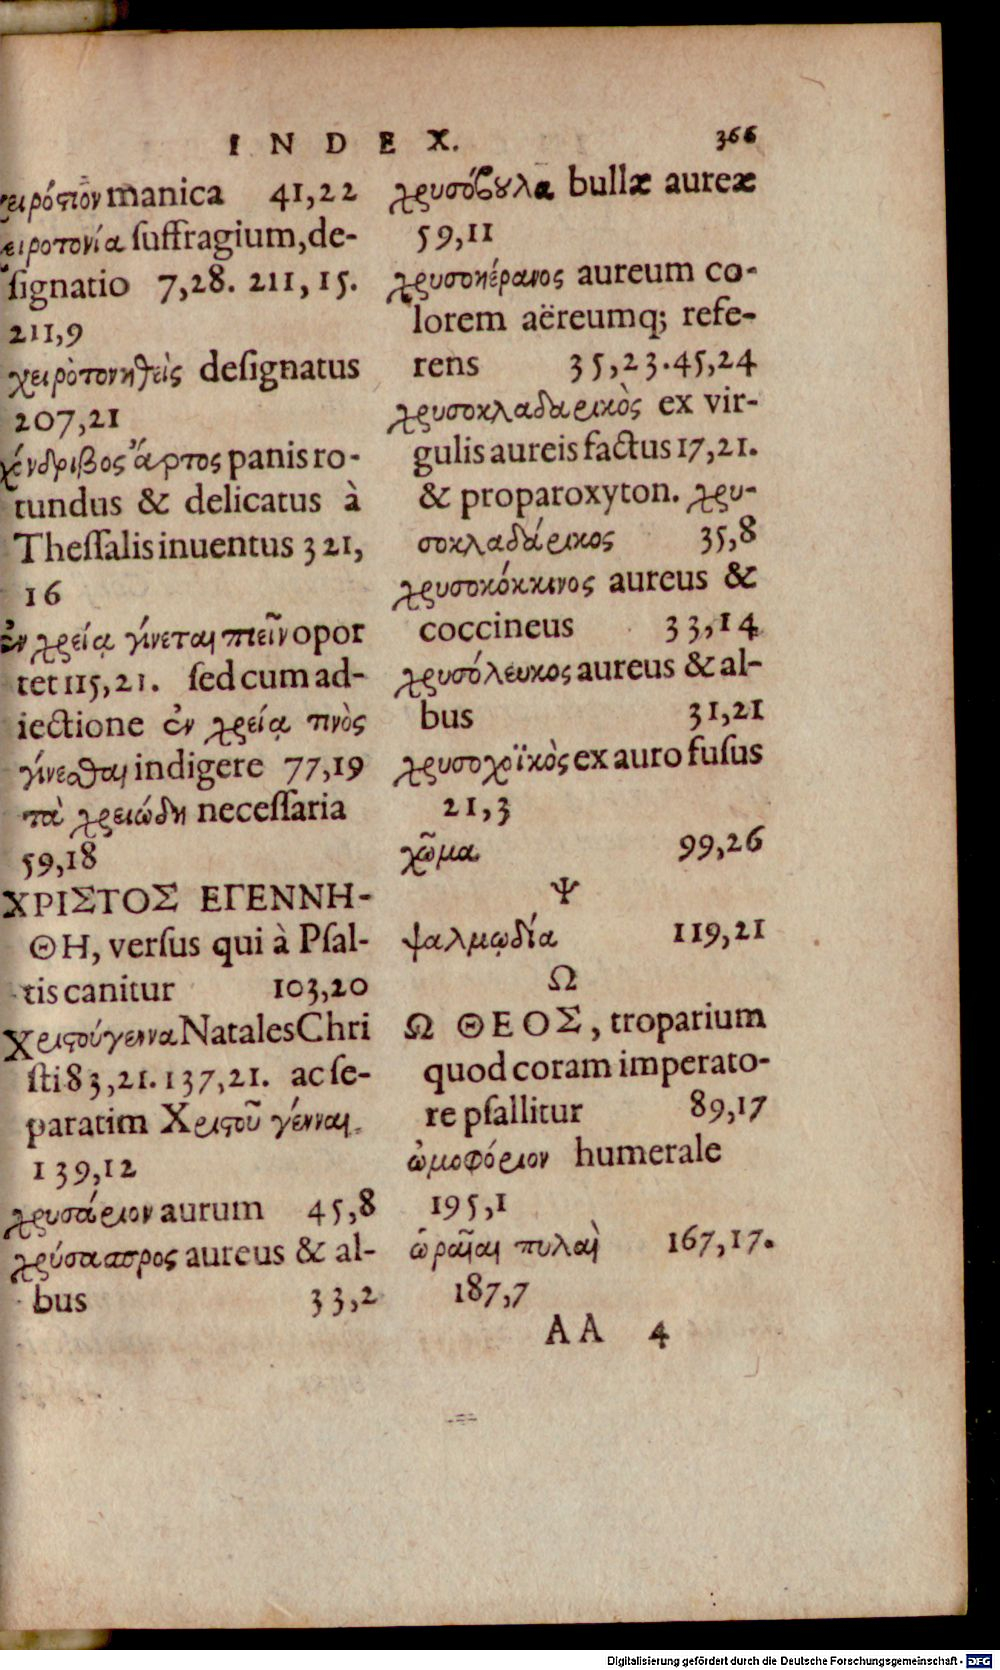 INDEX. 366
χειρόπιον manica 41,22
χειροτονία ſuffragium, de-
ſignatio 7,28. 211,15.
211,9
χειρὸτονηθεὶς deſignatus
207,21
χένδριβος ἄρτος panis ro-
tundus & delicatus à
Theſſalis inuentus 321,
16
ἐν χρείᾳ γίνεται πιεῖν opor
tet 115,21. ſed cum ad-
iectione ἐν χρείᾳ τινὸς
γίνεσθαι indigere 77,19
τὰ χρειώδη neceſſaria
59,18
ΧΡΙΣΤΟΣ ΕΓΕΝΝΗ-
ΘΗ, verſus qui à Pſal-
tis canitur 103,20
Χριστούγεννα Natales Chri
ſti 83,21. 137,21. ac ſe-
paratim Χριστοῦ γένναι.
139,12
χρυσάριον aurum 45,8
χρύσαασπρος aureus & al-
bus 33,2
χρυσόβουλα bullæ aureæ
59,11
χρυσοκέρανος aureum co-
lorem aëreumq; refe-
rens 35,23. 45,24
χρυσοκλαδαρικὸς ex vir-
gulis aureis factus 17,21.
& proparoxyton. χρυ-
σοκλαδάρικος 35,8
χρυσοκόκκινος aureus &
coccineus 33,14
χρυσόλευκος aureus & al-
bus 31,21
χρυσοχοϊκὸς ex auro fuſus
21,3
χῶμα 99,26
Ψ
ψαλμῳδία 119,21
Ω
Ω ΘΕΟΣ, troparium
quod coram imperato-
re pſallitur 89,17
ὠμοφόριον humerale
195,1
ὡραῖαι πυλαὶ 167,17.
187,7
AA 4
Digitalisierung gefördert durch die Deutsche Forschungsgemeinschaft - DFG